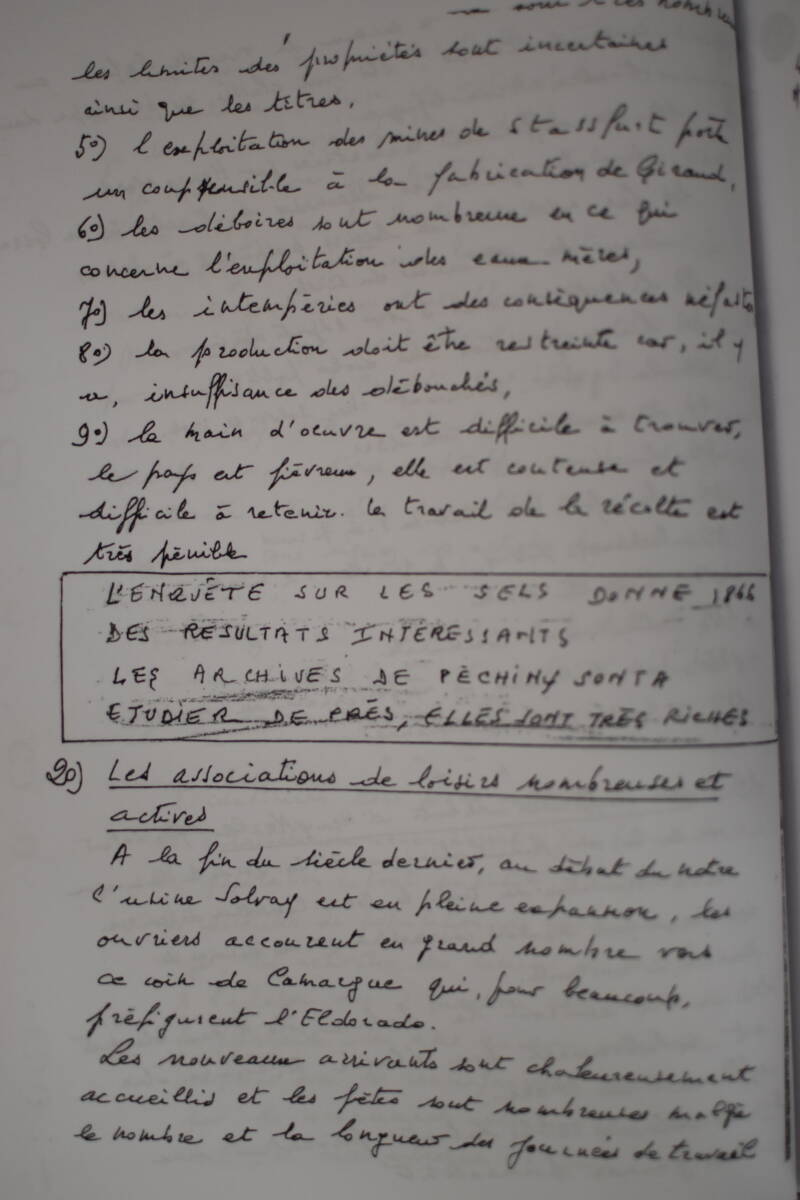 sont très nombreu
les limites des propriétés sont incertaines
ainsi que les titres.
5°) l'exploitation des mines de Stassfurt porte
un coup sensible à la fabrication de Giraud,
6°) les déboires sont nombreux en ce qui
concerne l'exploitation des eaux-mères,
7°) les intempéries ont des conséquences néfastes
8°) la production doit être restreinte car, il y
a, insuffisance des débouchés,
9°) la main d'oeuvre est difficile à trouver,
le pays est fiévreux, elle est couteuse et
difficile à retenir. Le travail de la récolte est
très pénible
L'ENQUÊTE SUR LES SELS DONNE 1866
DES RESULTATS INTERESSANTS
LES ARCHIVES DE PÉCHINY SONT A
ETUDIER DE PRÈS, ELLES SONT TRÈS RICHES
20) Les associations de loisirs nombreuses et
actives
A la fin du siècle dernier, au début du notre
l'usine Solvay est en pleine expansion, les
ouvriers accourent en grand nombre vers
ce coin de Camargue qui, pour beaucoup,
préfigurent l'Eldorado.
Les nouveaux arrivants sont chaleureusement
accueillis et les fêtes sont nombreuses malgré
le nombre et la longueur des journées de travail